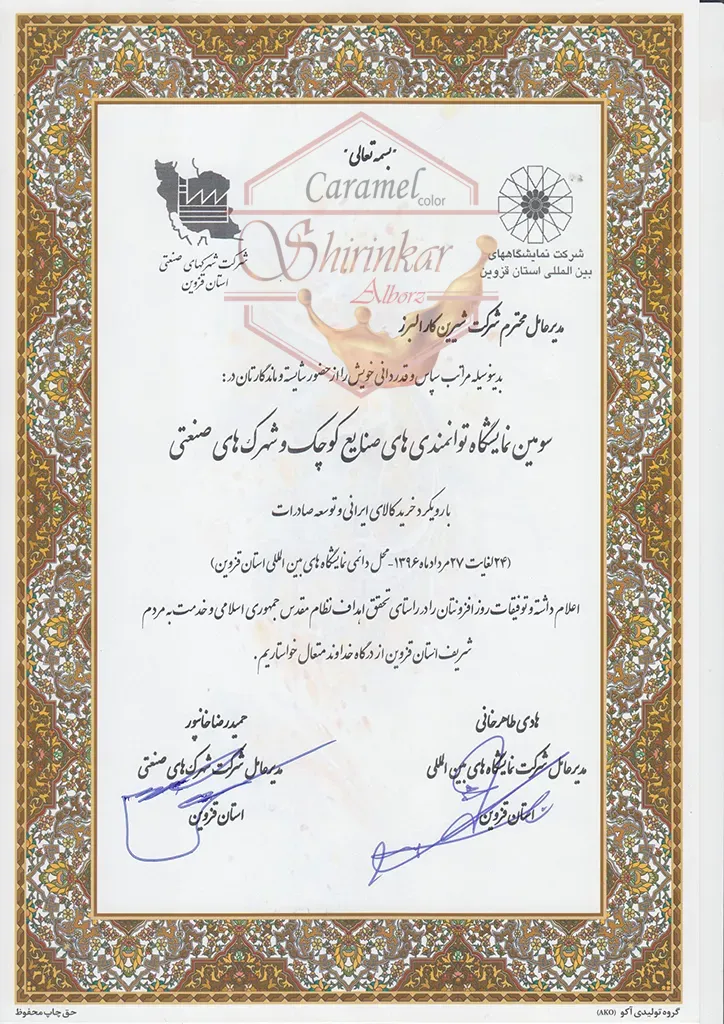 بسمه تعالی
Caramel color
Shirinkar
Alborz
شرکت نمایشگاههای
بین المللی استان قزوین
شرکت شهرکهای صنعتی
استان قزوین
مدیرعامل محترم شرکت شیرین کار البرز
بدینوسیله مراتب سپاس و قدردانی خویش را از حضور شایسته و ماندگارتان در:
سومین نمایشگاه توانمندی های صنایع کوچک و شهرک های صنعتی
با رویکرد خرید کالای ایرانی و توسعه صادرات
(۲۴ لغایت ۲۷ مرداد ماه ۱۳۹۶ - محل دائمی نمایشگاه های بین المللی استان قزوین)
اعلام داشته و توفیقات روز افزونتان را در راستای تحقق اهداف نظام مقدس جمهوری اسلامی و خدمت به مردم
شریف استان قزوین از درگاه خداوند متعال خواستاریم.
هادی طاهرخانی
مدیرعامل شرکت نمایشگاه های بین المللی
استان قزوین
حمیدرضا خانپور
مدیرعامل شرکت شهرک های صنعتی
استان قزوین
گروه تولیدی آکو (AKO)
حق چاپ محفوظ